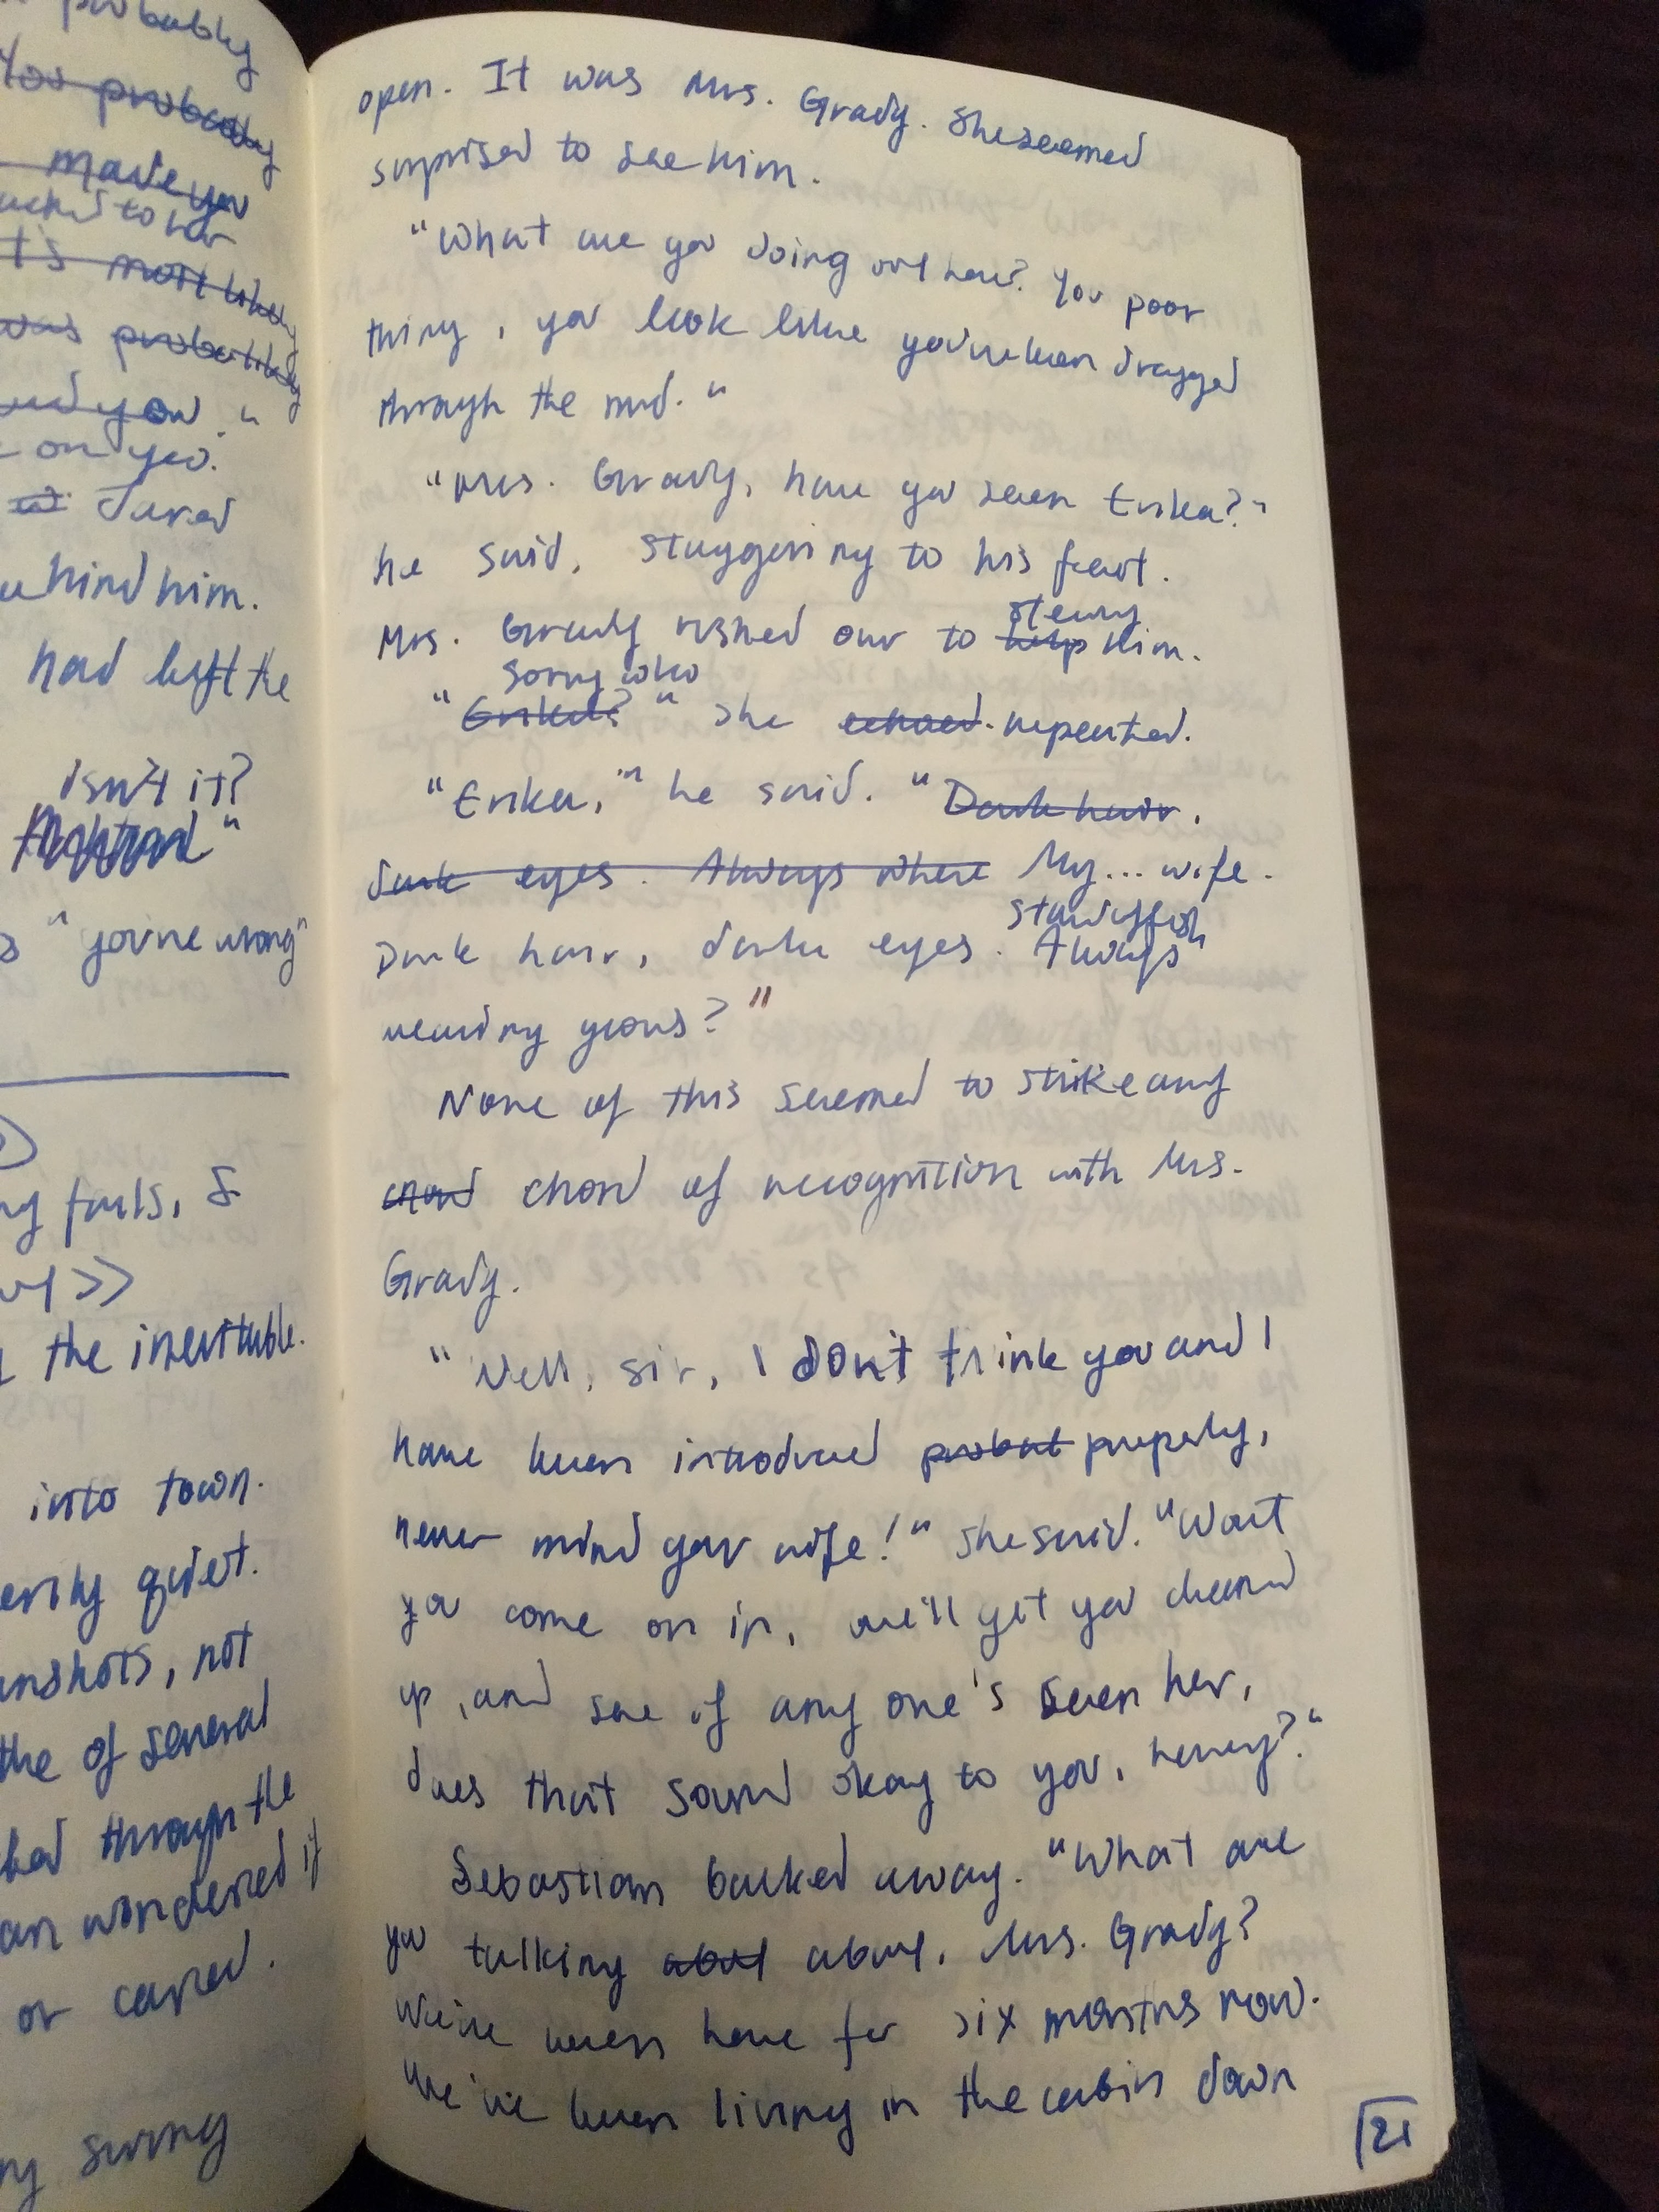 probably
You probably
made you
to her
It's most likely
was probably
you."
on you.
Jared
behind him.
had left the
isn't it?
"you're wrong"
fails, &
the inevitable.
into town.
quiet.
not
the of several
through the
wondered if
or cared.
swing
open. It was Mrs. Grady. She seemed
surprised to see him.
"What are you doing out here? You poor
thing, you look like you've been dragged
through the mud."
"Mrs. Grady, have you seen Erika?"
he said, staggering to his feet.
steady
Mrs. Grady rushed over to help him.
Sorry who
"Erika?" she echoed. repeated.
"Erika," he said. "Dark hair,
dark eyes. Always where My... wife.
Dark hair, dark eyes. Always
wearing gowns?"
None of this seemed to strike any
chord chord of recognition with Mrs.
Grady.
"Well, sir, I don't think you and I
have been introduced probat properly,
never mind your wife!" she said. "Won't
you come on in, we'll get you cleaned
up, and see if any one's seen her,
does that sound okay to you, honey?"
Sebastian backed away. "What are
you talking about about, Mrs. Grady?
We've been here for six months now.
We've been living in the cabin down
21